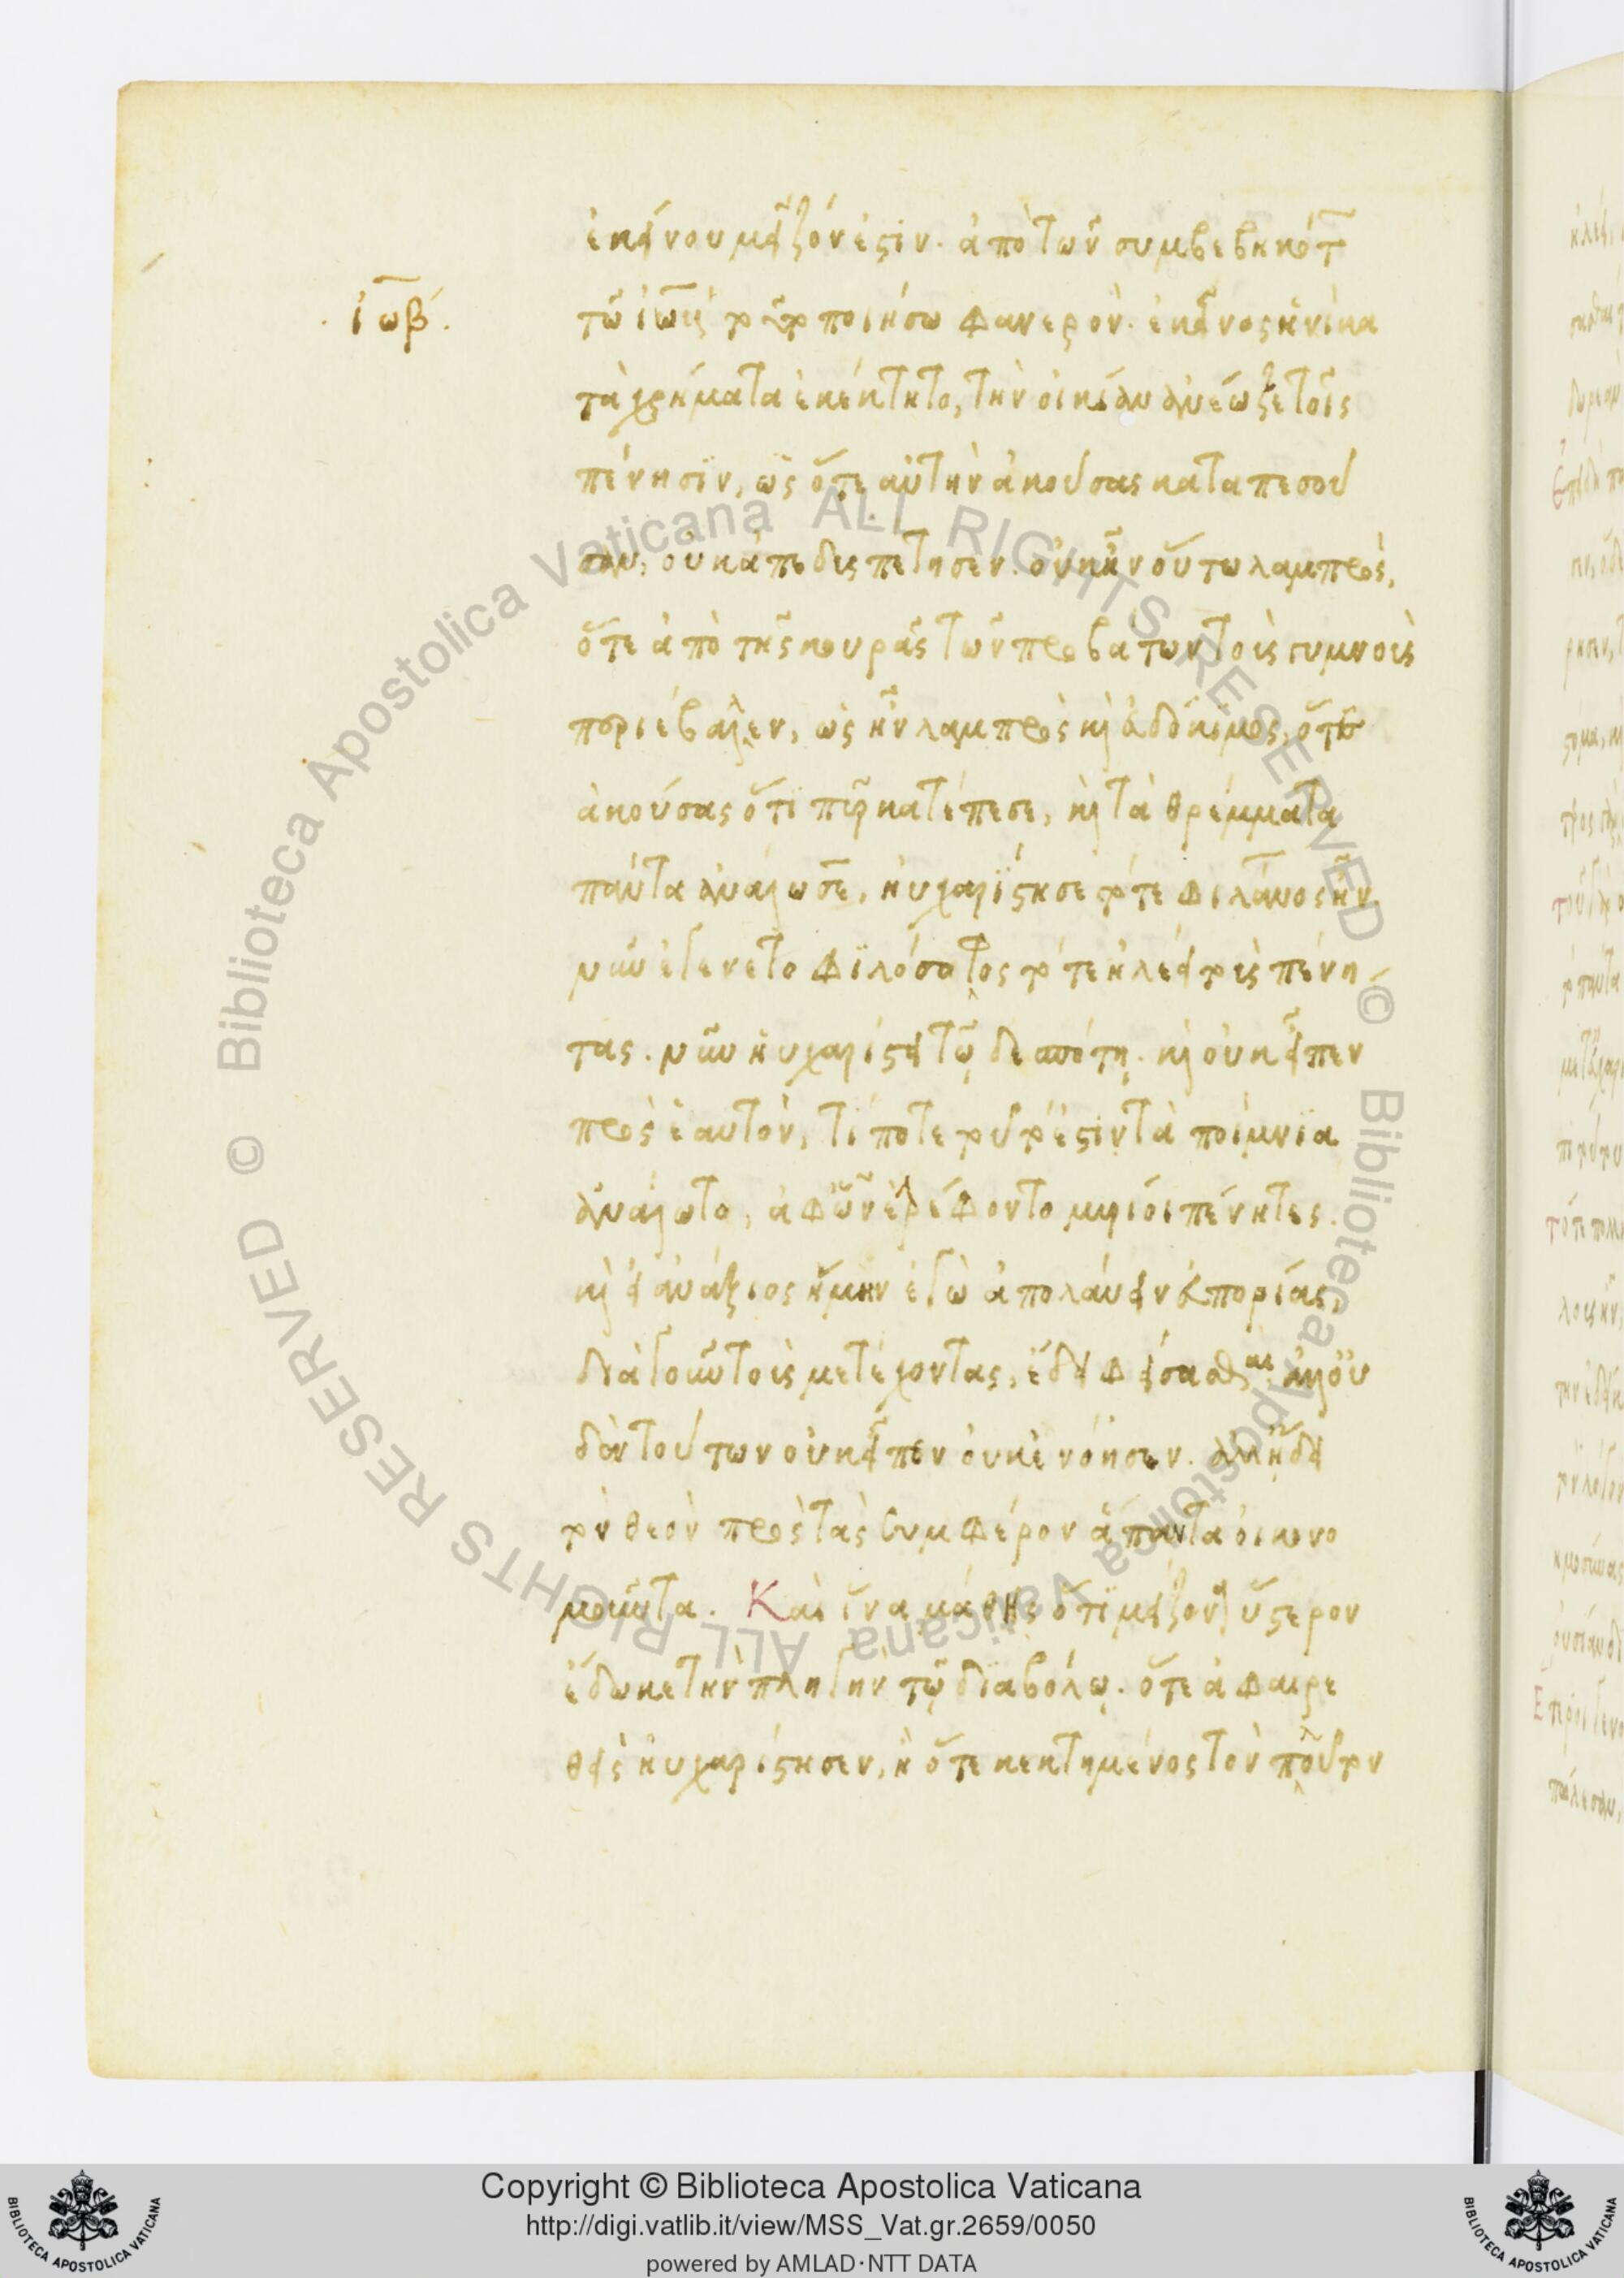 ἰωβ
ἐκείνου μεῖζόν ἐστιν. ἀπὸ τῶν συμβεβηκότ
τῶ ἰὼβ τοῦτο ποιήσω φανερόν. ἐκεῖνος ἡνίκα
τὰ χρήματα ἐκέκτητο, τὴν οἰκίαν ἀνέωξε τοῖς
πένησϊν, ὡς ὅτε αὐτὴν ἀκούσας καταπεσοῦ
σαν, οὐκ ἀπεδυσπέτησεν. οὐκ ἦν οὕτω λαμπρὸς,
ὅτε ἀπὸ τῆς κουρᾶς τῶν προβάτων τοὺς γυμνοὺς
περιέβαλλεν, ὡς ἦν λαμπρὸς κὶ εὐδόκιμος, ὅτε
ἀκούσας ὅτϊ πῦρ κατέπεσε, κὶ τὰ θρέμματα
πάντα ἀνάλωσε, ηὐχαρίστησε τότε φιλᾶνος ἦν.
νῦν ἐγένετο φϊλόσοφος τότε ἠλέει τοὺς πένη
τας. νῦν ηὐχαρίστει τῶ δεσπότη. κὶ οὐκ εἶπεν
πρὸς ἑαυτὸν, τί ποτε τοῦτό ἐστιν τὰ ποίμνϊα
ἀνάλωτο, ἀφ ὧν ἐτρέφοντο μυρίοι πένητες.
κὶ εἰ ἀνάξιος ἤμην ἐγὼ ἀπολάυειν εὐπορίας,
διὰ γοῦν τοὺς μετέχοντας, ἔδει φείσασθαι. ἀλλοὐ
δὲν τούτων οὐκ εἶπεν οὐκ ἐνόησεν. ἀλλἤδει
τὸν θεὸν πρὸς τὰς συμφέρον ἅπαντα οἰκονο
μοῦντα. Καὶ ἵνα μάθης ὅτϊ μείζονα ὕστερον
ἔδωκε τὴν πληγὴν τῶ διαβόλω. ὅτε ἀφαιρε
θεὶς ηὐχαρίστησεν, ἢ ὅτε κεκτημένος τὸν πλοῦτον
Copyright © Biblioteca Apostolica Vaticana
http://digi.vatlib.it/view/MSS_Vat.gr.2659/0050
powered by AMLAD·NTT DATA